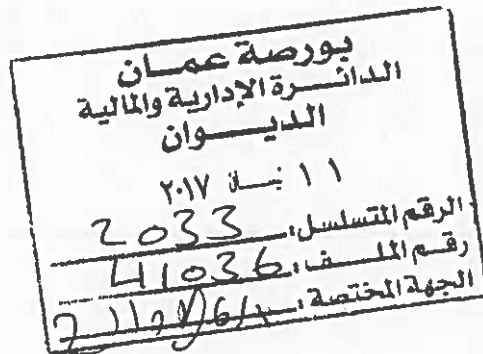 بورصة عمان
الدائرة الإدارية والمالية
الديوان
١١ نيسان ٢٠١٧
الرقم المتسلسل: 2033
رقم الملف: 41036
الجهة المختصة: